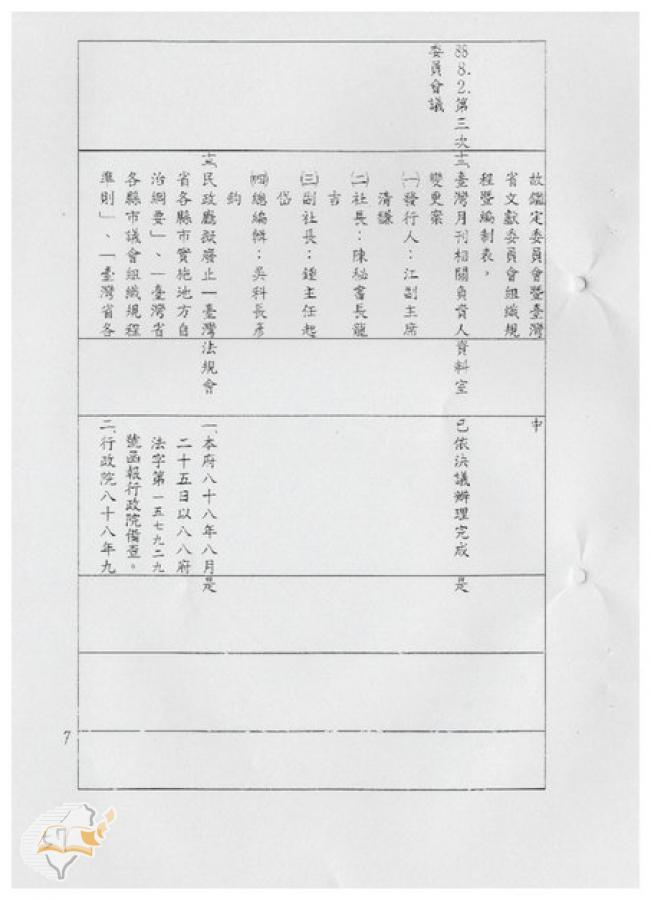 88.8.2.第三次
委員會議
故鑑定委員會暨臺灣
省文獻委員會組織規
程暨編制表。
臺灣月刊相關負責人
變更案
㈠發行人：江副主席
清馦
㈡社長：陳秘書長龍
吉
㈢副社長：鍾主任起
岱
㈣總編輯：吳科長彥
鈞
民政廳擬廢止「臺灣
省各縣市實施地方自
治綱要」、「臺灣省
各縣市議會組織規程
準則」、「臺灣省各
資料室
法規會
中
已依決議辦理完成
一、本府八十八年八月
二十五日以八八府
法字第一五七九二九
號函報行政院備查。
二、行政院八十八年九
是
是
7